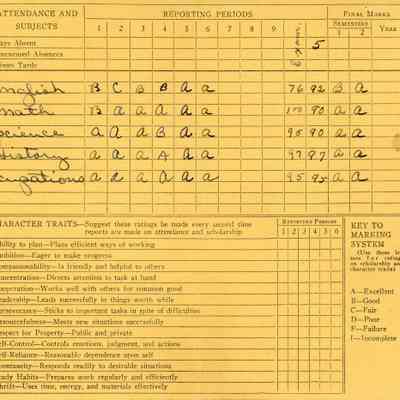 ATTENDANCE AND SUBJECTS REPORTING PERIODS FINAL MARKS
1 2 3 4 5 6 7 8 9 SEMESTERS YEAR
1 2
ays Absent 5
nexcused Absences
imes Tardy
nglish B C B B a a 76 92 B a
math B a a a a a 100 90 a a
science a a a B a a 95 90 a a
History a a a A a a 97 87 a a
cupations a a a a a a 95 95 a a
HARACTER TRAITS—Suggest these ratings be made every second time reports are made on attendance and scholarship
REPORTING PERIODS
1 2 3 4 5 6
bility to plan—Plans efficient ways of working
mbition—Eager to make progress
ompanionability—Is friendly and helpful to others
oncentration—Directs attention to task at hand
ooperation—Works well with others for common good
eadership—Leads successfully in things worth while
erseverance—Sticks to important tasks in spite of difficulties
esourcefulness—Meets new situations successfully
espect for Property—Public and private
elf-Control—Controls emotions, judgment, and actions
elf-Reliance—Reasonable dependence upon self
pontaneity—Responds readily to desirable situations
teady Habits—Prepares work regularly and efficiently
hrift—Uses time, energy, and materials effectively
KEY TO
MARKING
SYSTEM
on scholarship and
character traits)
A—Excellent
B—Good
C—Fair
D—Poor
F—Failure
I—Incomplete